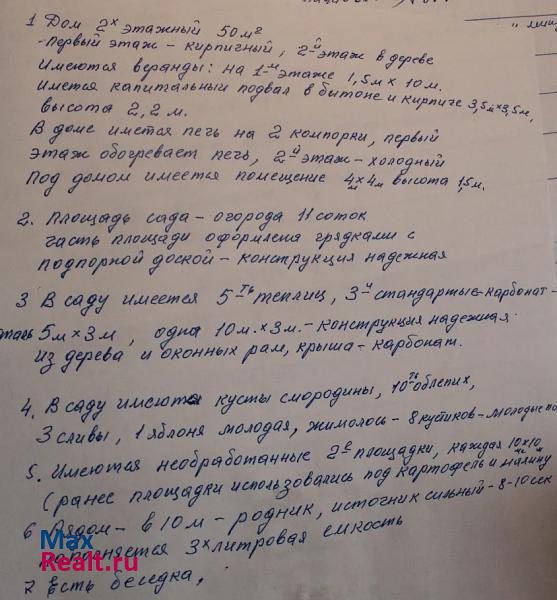 1 Дом 2х этажный 50м²
- Первый этаж - кирпичный, 2й этаж в дереве
Имеются веранды: на 1-м этаже 1,5м х 10м.
Имется капитальный подвал в бытоне и кирпиче 3,5м х 3,5м,
высота 2,2 м.
В доме имется печь на 2 компорки, первый
этаж обогревает печь, 2й этаж - холодный
Под домом имеется помещение 4м х 4м высота 1,5м.
2. Площадь сада - огорода 11 соток
часть площади оформлена грядками с
подпорной доской - конструкция надежная
3 В саду имеется 5ть теплиц, 3-й стандартые-карбонат-
5м х 3м, одна 10м. х 3м. - конструкция надежная.
из дерева и оконных рам, крыша - карбонат.
4. В саду имеютя кусты смородины, 10ть облепих,
3 сливы, 1 яблоня молодая, жимолось - 8 кустиков - молодые
5. Имеются необработанные 2е площадки, каждая 10х10
(ранее площадки использовались под картофель и малину
6 Рядом - в 10м - родник, источник сильный - 8-10 сек
наполняется 3х литровая емкость
7 Есть беседка,
Max
Realt.ru